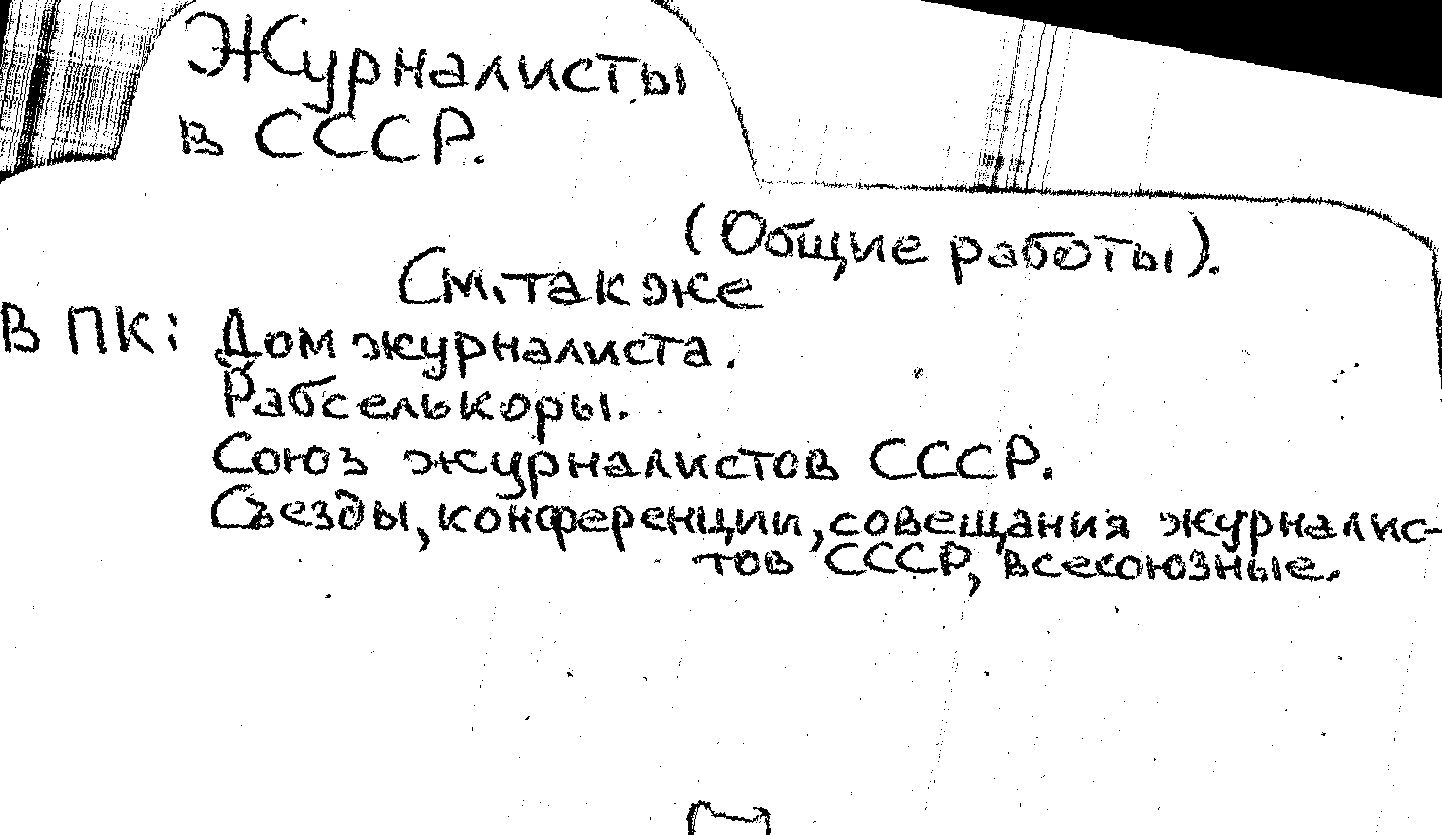 Журналисты
в СССР.
(Общие работы).
См. также
В ПК: Дом журналиста.
Рабселькоры.
Союз журналистов СССР.
Съезды, конференции, совещания журналис-
тов СССР, всесоюзные.